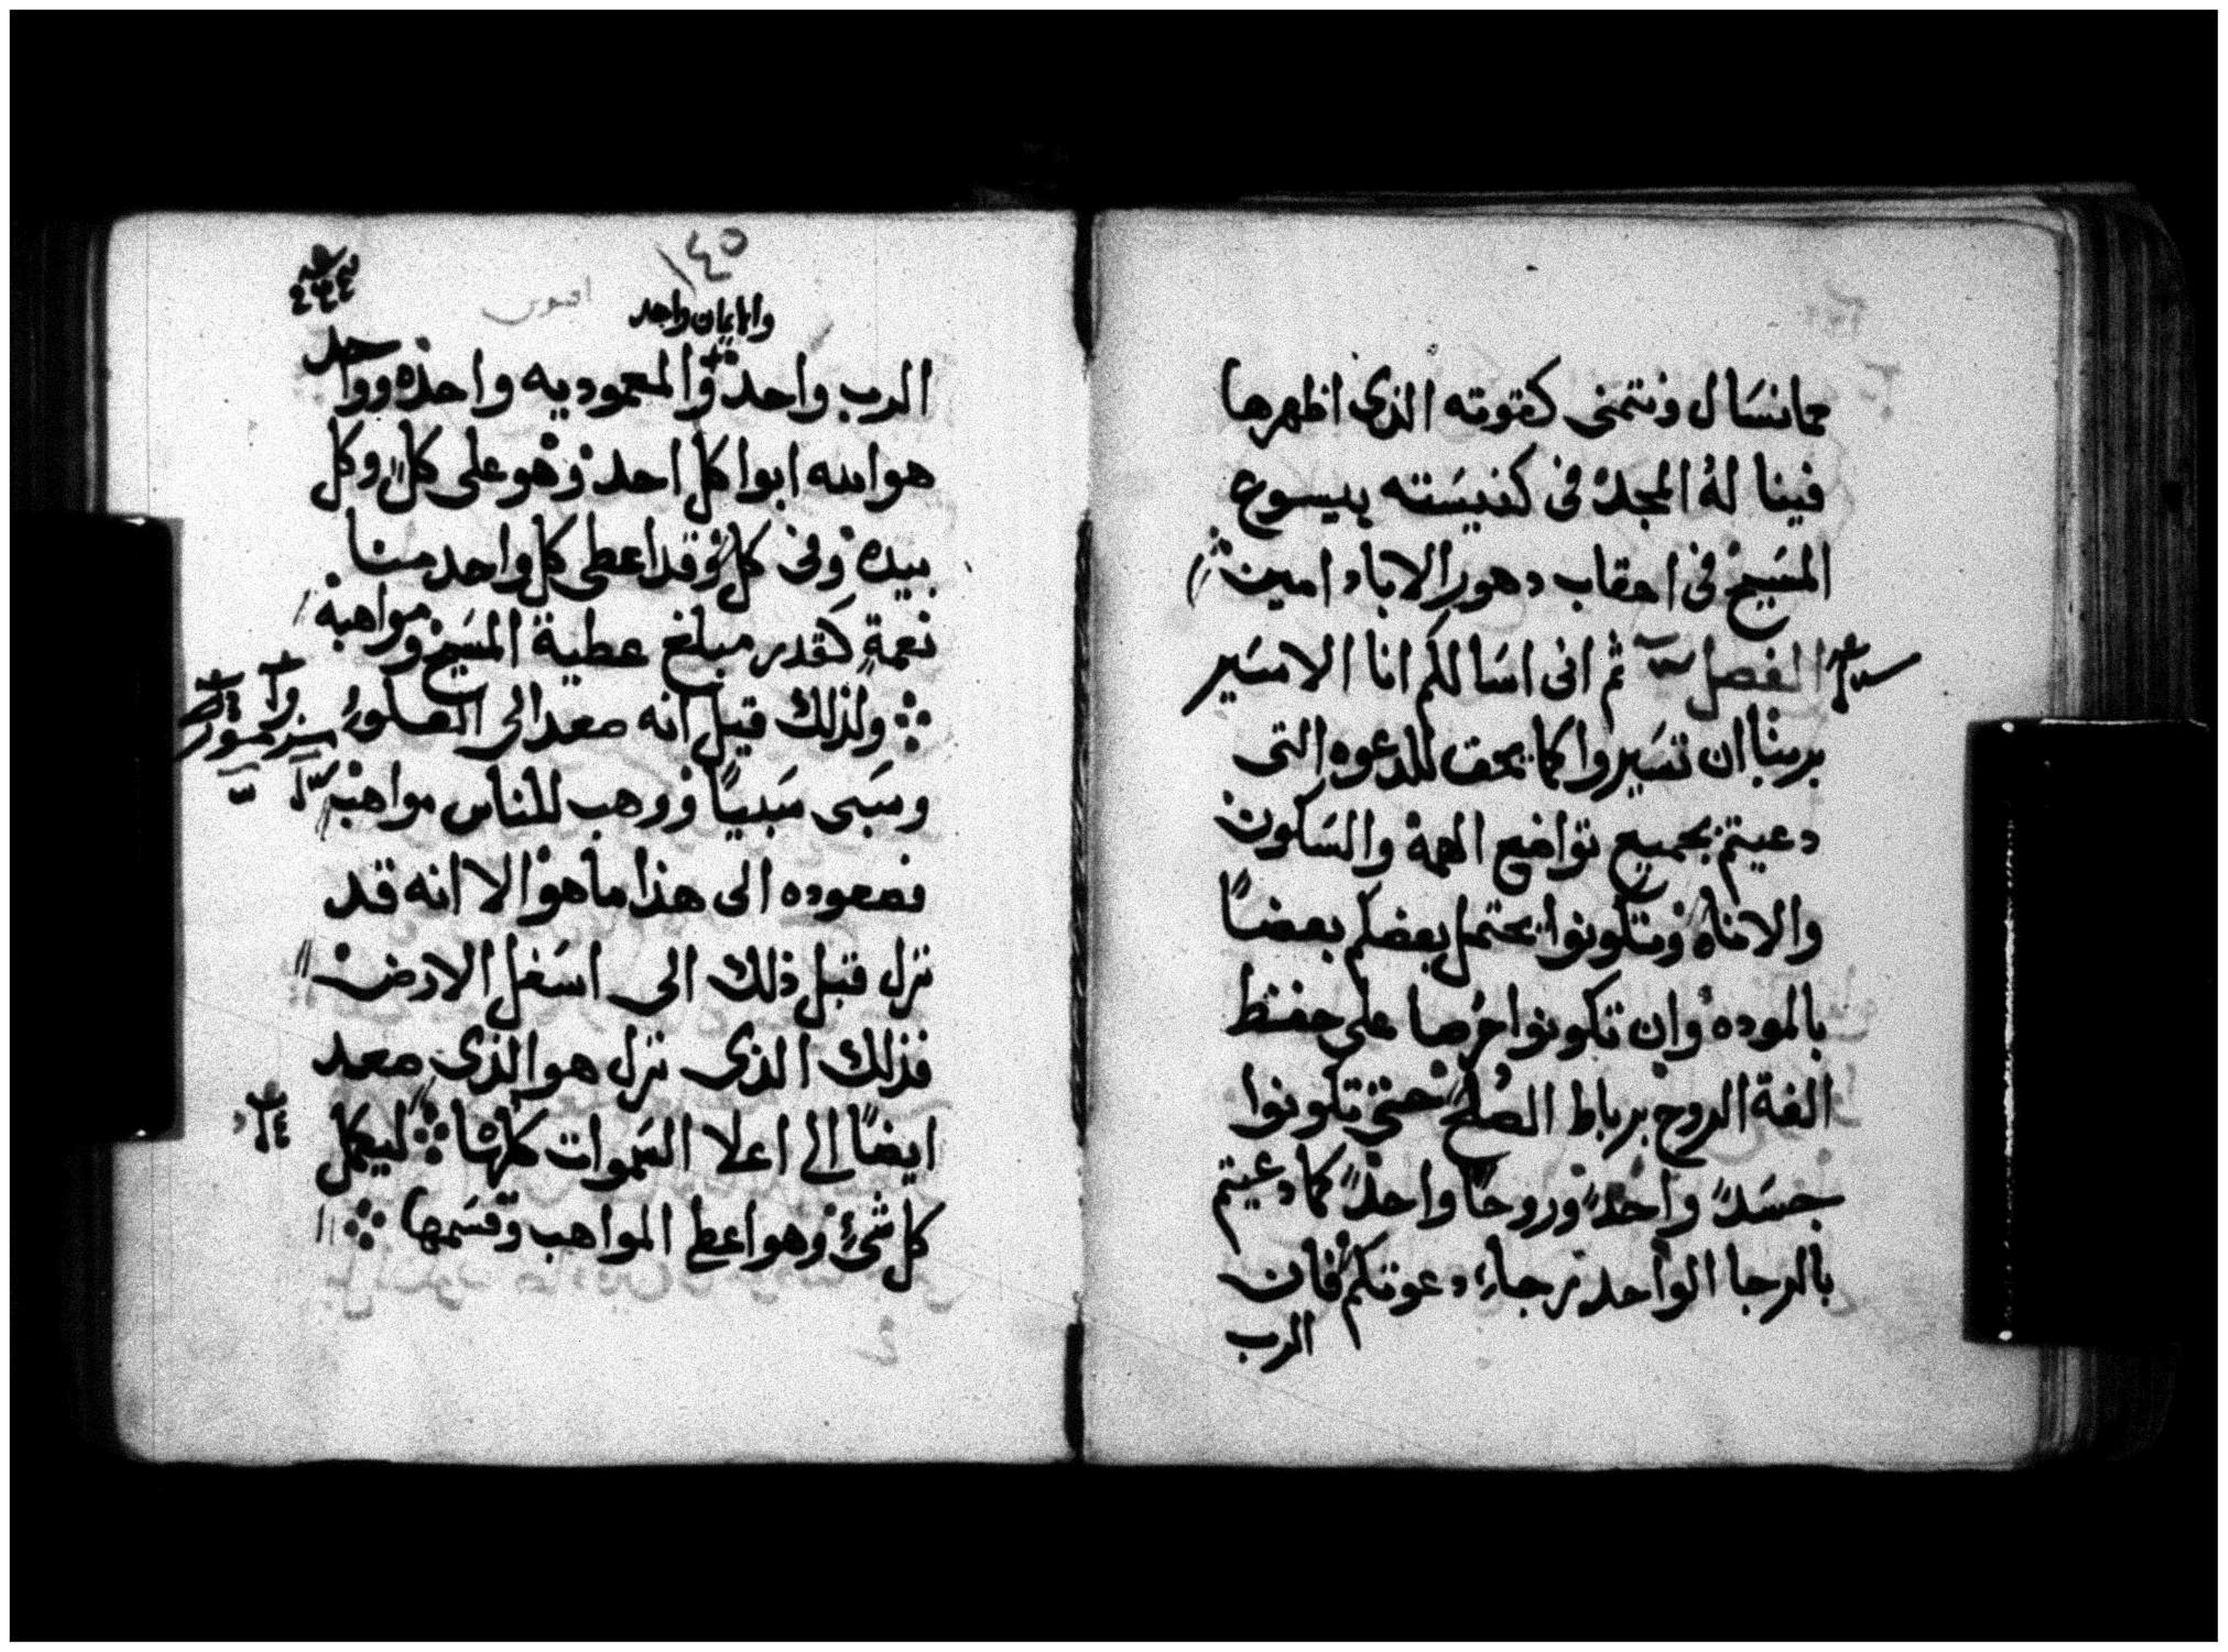 مما نسال ونتمنى كقوته الذى اظهرها
فينا له المجد فى كنيسته بيسوع
المسيح فى احقاب دهور الاباد امين
الفصل ثم انى اسالكم انا الاسير
بربنا ان تسيروا كما يحق للدعوه التى
دعيتم بجميع تواضع الهمة والسكون
والاناه وتكونوا يحتمل بعضكم بعضاً
بالموده وان تكونوا حرصا على حفظ
الفة الروح برباط الصلح حتى تكونوا
جسداً واحداً وروحاً واحداً كما دعيتم
بالرجا الواحد رجاء دعوتكم فان
الرب
١٤٥
وامايمان واحد
الرب واحد والمعموديه واحده وواحد
هو الله ابوا كل احد وهو على كل وكل
بيده وفى كل وقد اعطى كل واحد منا
نعمةٍ كقدر مبلغ عطية المسيح ومواهبه
ولذلك قيل انه صعد الى العلو
وسبى سبياً ووهب للناس مواهب
فصعوده الى هذا ما هو الا انه قد
نزل قبل ذلك الى اسفل الارض
فذلك الذى نزل هو الذى صعد
ايضاً الى اعلا السموات كلها ليكمل
كل شئ وهو اعطى المواهب وقسمها